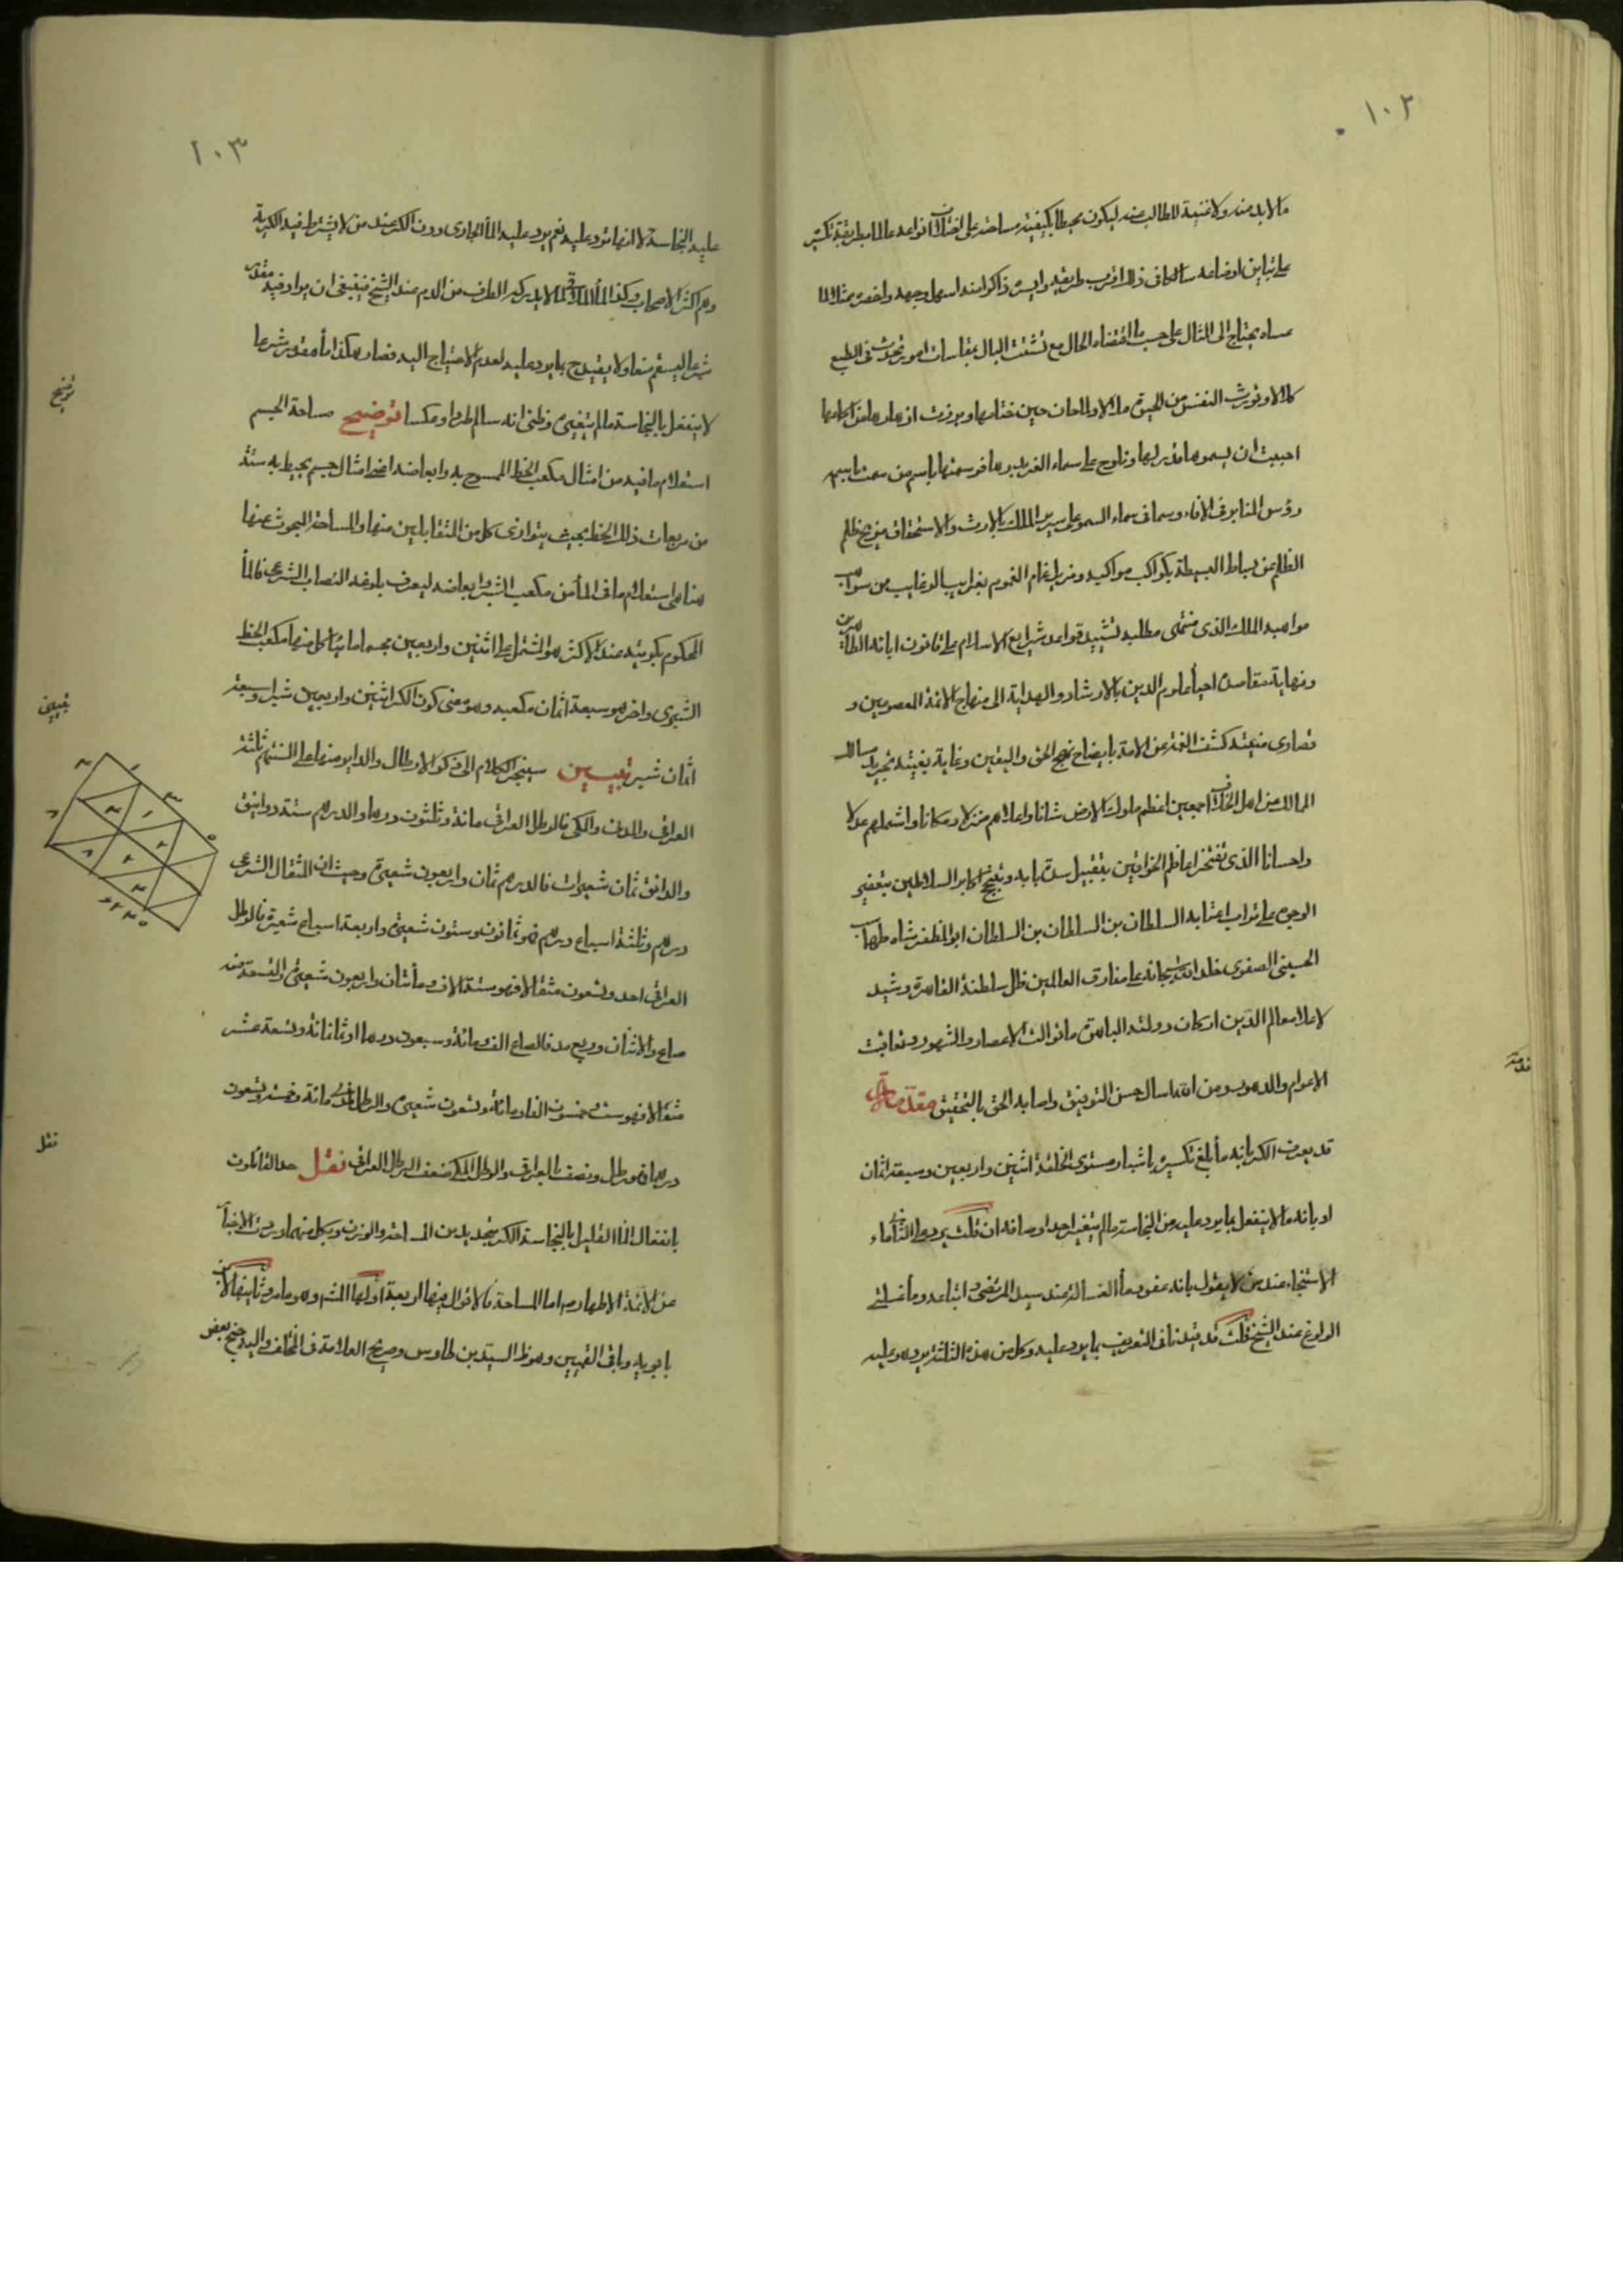 ١٠٢
مالابد منه ولا غنية للطالب عنه ليكون محيطا بكيفية مساحته على اختلاف انواعه عالما بطريقة تكسيره
على تباين اوضاعه سالكا فى ذلك اقرب طريقة وايسره ذاكرا منه اسهل وجهه واخصره ممثلا لما
عساه يحتاج الى المثال على حسب ما اقتضاه الحال مع تشتت البال بمقاسات امور تحدث فى الطبع
كلالا وتورث النفس من الحيوة ملالا ولما حان حين ختامها وبرزت ازهارها من اكمامها
احببت ان يسمو هامة بدرها وتلوح على سماء الغر فوسمتها باسم من سمت باسمه
رؤس المنابر فى الافاء وسما فى سماء السمو على سرير الملك بالارث والاستحقاق مزيح ظلم
الظلم عن بساط البسيطة بكواكب مواكبه ومزيل غمام الغموم بغرايب الرغايب من سحاب
مواهبه الملك الذى منتهى مطلبه تشييد قواعد شرايع الاسلام على قانون ابائه الطاهرين
ونهاية مقاصده احياء علوم الدين بالارشاد والهداية الى منهاج الائمة المعصومين و
قصارى منيته كشف الغمة عن الامة بايضاح نهج الحق واليقين وغاية بغيته تحرير مسالك
الممالك من اهل الخلاف اجمعين اعظم ملوك الارض شانا واعلاهم منزلا ومكانا واشملهم عدلا
واحسانا الذى تفتخر اعاظم الخواقين بتقبيل سدة بابه وتبتهج اكابر السلاطين بتعفير
الوجوه على تراب اعتابه السلطان بن السلطان بن السلطان ابو المظفر شاه طهماسب
الحسينى الصفوى خلد الله سبحانه على مفارق العالمين ظلال سلطنة القاهرة وشيد
لاعلاء معالم الدين اركان دولته الباهرة ما توالت الاعصار والشهور وتعاقبت
الاعوام والدهور ومن الله اسال حسن التوفيق واصابة الحق بالتحقيق مقدمة
قد يعرف الكر بانه ماء بلغ تكسيره باشبار مستوى الخلقة اثنين واربعين وسبعة اثمان
او بانه ما لا ينفعل بما يرد عليه من النجاسة ما لم يتغير احد اوصافه ان قلت يرد على الثانى ماء
الاستنجاء عند من لا يقول بانه عفو وماء الغسالة عند سيد المرتضى واتباعه وماء غسلتى
الولوغ عند الشيخ قلت قد قيدنا فى التعريف بما يرد عليه وكل من هذه الثلثة يرد هو عليه
مقدمة
١٠٣
عليه النجاسة لا انها ترد عليه نعم يرد عليه الماء الجارى دون الكر عند من لا يشترط فيه الكرية
وهم اكثر الاصحاب وكذا الماء الملاقى لما لا يدركه الطرف من الدم عند الشيخ فينبغى ان يزاد فيه مقدر
شرعا ليستقيم منعا ولا يقيد ح بما يرد عليه لعدم الاحتياج اليه فصار هكذا ماء مقدر شرعا
لا ينفعل بالنجاسة ما لم يتغير وظنى انه سالم طردا وعكسا توضيح مساحة الجسم
استعلام ما فيه من امثال مكعب الخط الممسوح به وابعاضه اعنى امثال جسم يحيط به ستة
من مربعات ذلك الخط بحيث يتوازى كل من المتقابلين منها والمساحة المبحوث عنها
هنا هى استعلام ما فى الماء من مكعب الشبر وابعاضه ليعرف بلوغه النصاب الشرعى فالماء
المحكوم بكريته عند الاكثر هو المشتمل على اثنين واربعين مجسما مائيا كل منها مكعب الخط
الشبرى واخر هو سبعة اثمان مكعبه وهو معنى كون الكر اثنين واربعين شبرا وسبعة
اثمان شبر تبيين سينجر الكلام الى ذكر الارطال والداير منها على السنتهم ثلثة
العراقى والمدنى والمكى فالرطل العراقى مائة وثلثون درهما والدرهم ستة دوانيق
والدانق ثمان شعيرات فالدرهم ثمان واربعون شعيرة وحيث ان المثقال الشرعى
درهم وثلثة اسباع درهم فهو ثمانون وستون شعيرة واربعة اسباع شعيرة فالرطل
العراقى احد وتسعون مثقالا فهو ستة الاف ومائتان واربعون شعيرة والتسعة منه
صاع والاثنان وربع مد فالصاع الف ومائة وسبعون درهما او ثمانمائة وتسعة عشر
مثقالا فهو ستة وخمسون الفا ومائة وستون شعيرة والرطل المدنى مائة وخمسة وتسعون
درهما فهو رطل ونصف بالعراقى والرطل المكى ضعف الرطل العراقى نقل حد القائلون
بانفعال الماء القليل بالنجاسة الكر بتحديدين المساحة والوزن وبكل منهما وردت الاخبار
عن الائمة الاطهار اما المساحة فالاقوال فيها اربعة اولها المشهور وهو ما مر وثانيها لابن
بابويه وباقى القميين وهو ظ السيد بن طاوس وصريح العلامة فى المختلف والميه جنح بعض
توضيح
تبيين
نقل